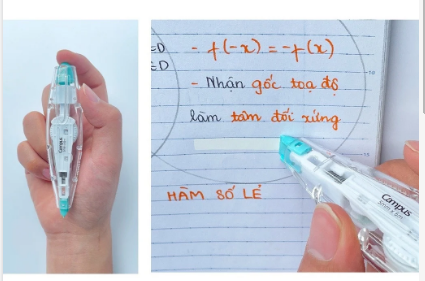 Campus
=D
=D
- f(-x) = -f(x)
- Nhận gốc toạ độ
làm tâm đối xứng
Campus
HÀM SỐ LẺ